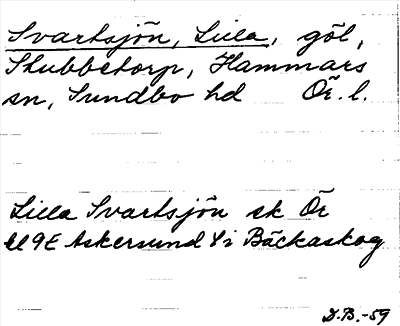 Svartsjön, Lilla, göl,
Stubbetorp, Hammars
sn, Sundbo hd Ör. l.
Lilla Svartsjön sk Ör
9E Askersund Bäckaskog
D.B.-59